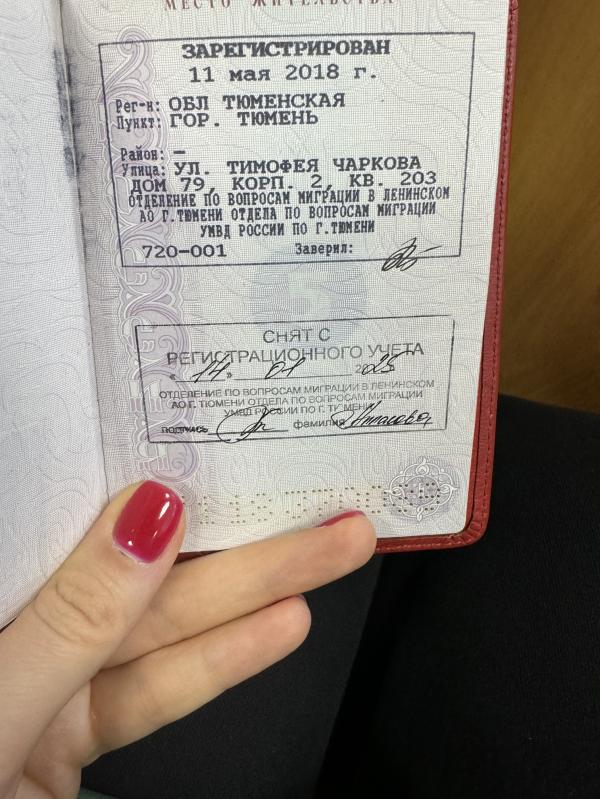 МЕСТО ЖИТЕЛЬСТВА
ЗАРЕГИСТРИРОВАН
11 мая 2018 г.
Рег-н: ОБЛ ТЮМЕНСКАЯ
Пункт: ГОР. ТЮМЕНЬ
Район: —
Улица: УЛ. ТИМОФЕЯ ЧАРКОВА
ДОМ 79, КОРП. 2, КВ. 203
ОТДЕЛЕНИЕ ПО ВОПРОСАМ МИГРАЦИИ В ЛЕНИНСКОМ
АО Г.ТЮМЕНИ ОТДЕЛА ПО ВОПРОСАМ МИГРАЦИИ
УМВД РОССИИ ПО Г.ТЮМЕНИ
720-001 Заверил:
СНЯТ С
РЕГИСТРАЦИОННОГО УЧЕТА
«14» 01 2025
ОТДЕЛЕНИЕ ПО ВОПРОСАМ МИГРАЦИИ В ЛЕНИНСКОМ
АО Г. ТЮМЕНИ ОТДЕЛА ПО ВОПРОСАМ МИГРАЦИИ
УМВД РОССИИ ПО Г. ТЮМЕНИ
подпись фамилия